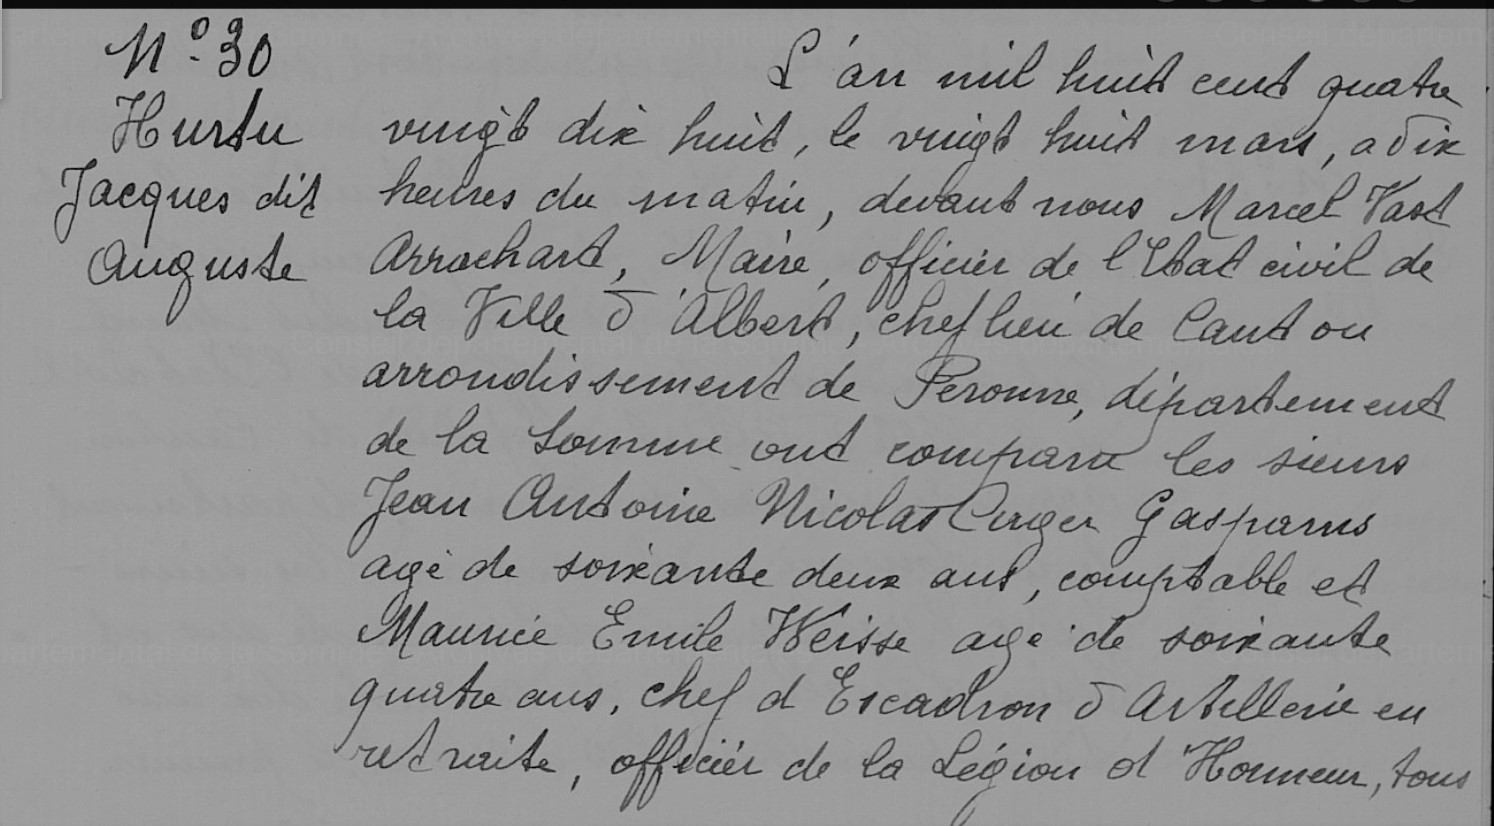 N° 30
Hurtu
Jacques dit
Auguste
L'an mil huit cent quatre
vingt dix huit, le vingt huit mars, a dix
heures du matin, devant nous Marcel Vast
Arrachart, Maire, officier de l'Etat civil de
la Ville d'Albert, chef lieu de Canton
arrondissement de Peronne, département
de la Somme ont comparu les sieurs
Jean Antoine Nicolas Gasparus
agé de soixante deux ans, comptable et
Maurice Emile Weisse agé de soixante
quatre ans, chef d'Escadron d'Artillerie en
retraite, officier de la Légion d'Honneur, tous